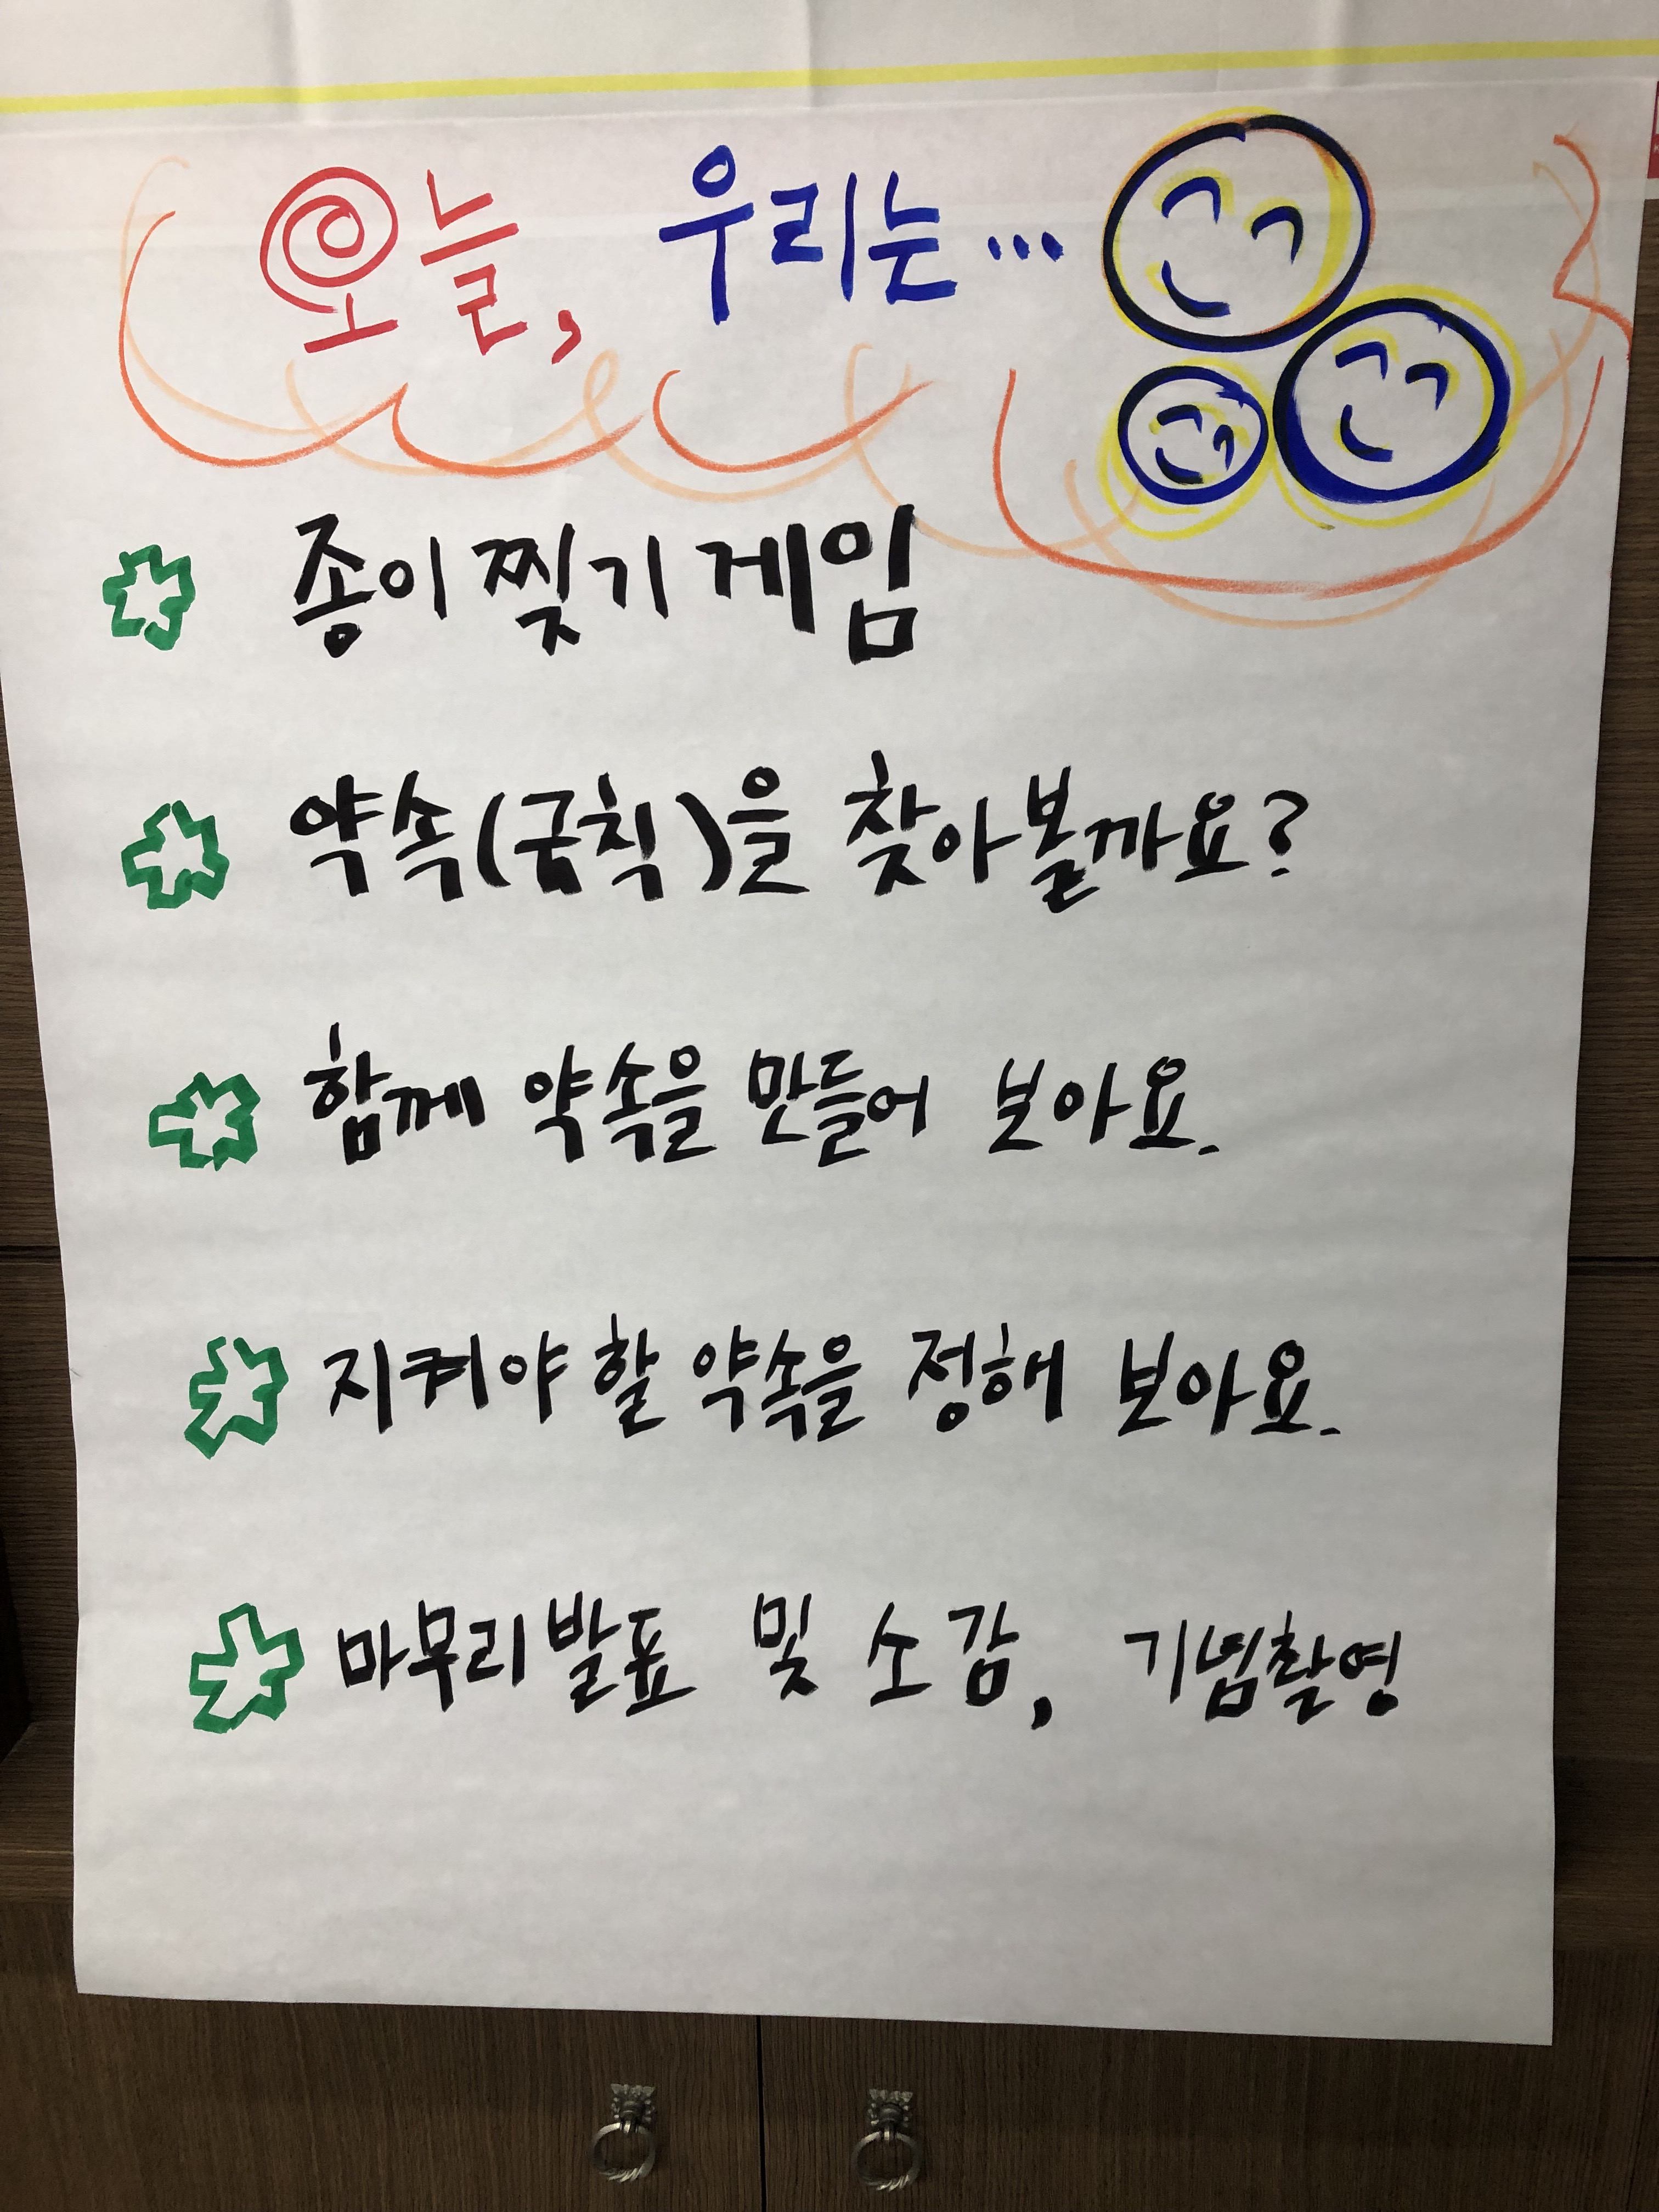 오늘, 우리는...
종이 찢기 게임
약속(규칙)을 찾아볼까요?
함께 약속을 만들어 보아요.
지켜야 할 약속을 정해 보아요.
마무리발표 및 소감, 기념촬영